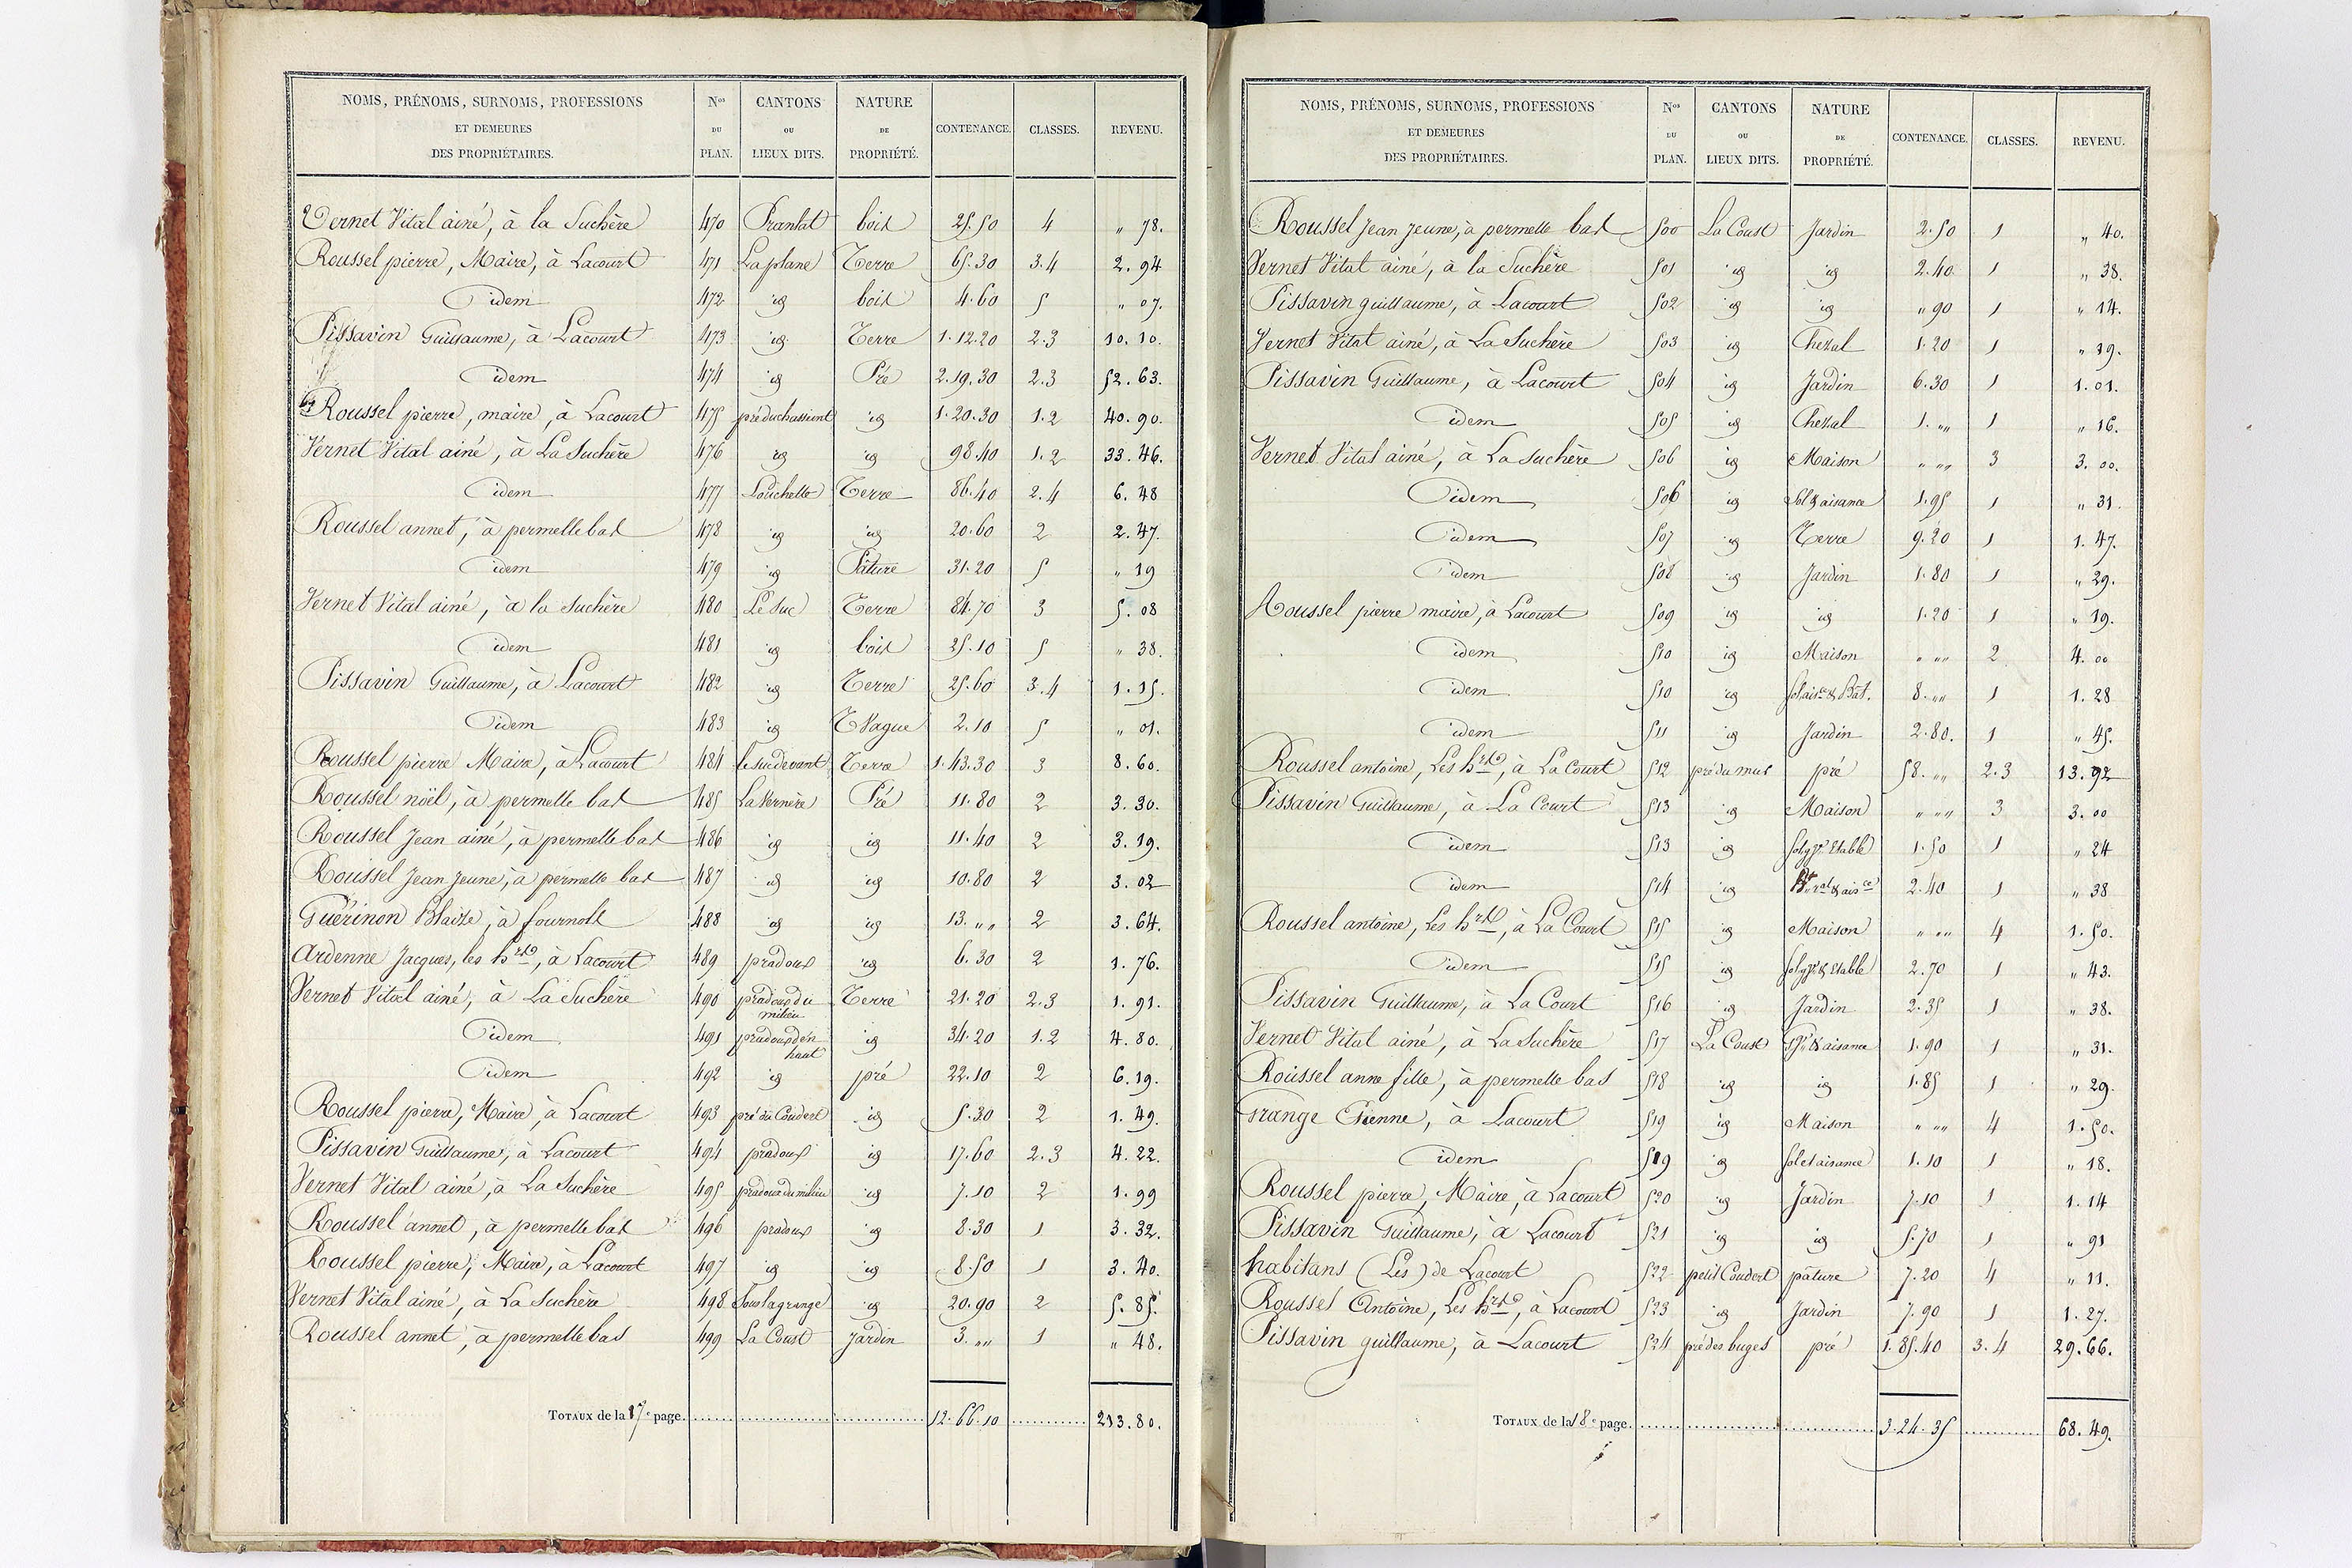 NOMS, PRÉNOMS, SURNOMS, PROFESSIONS ET DEMEURES DES PROPRIÉTAIRES. Nos DU PLAN. CANTONS OU LIEUX DITS. NATURE DE PROPRIÉTÉ. CONTENANCE. CLASSES. REVENU.
Vernet Vital ainé, à la Suchère 470 Prantat bois 25.50 4 „ 78.
Roussel pierre, Maire, à Lacourt 471 La plane Terre 65.30 3.4 2.94
idem 472 id bois 4.60 5 „ 07.
Pissavin Guillaume, à Lacourt 473 id Terre 1.12.20 2.3 10.10.
idem 474 id Pré 2.19.30 2.3 52.63.
Roussel pierre, maire, à Lacourt 475 pré duchassient id 1.20.30 1.2 40.90.
Vernet Vital ainé, à La Suchère 476 id id 98.40 1.2 33.46.
idem 477 Louchette Terre 86.40 2.4 6.48
Roussel annet, à permelle bas 478 id id 20.60 2 2.47.
idem 479 id Pâture 31.20 5 „ 19
Vernet Vital ainé, à la Suchère 480 Le Suc Terre 84.70 3 5.08
idem 481 id bois 25.10 5 „ 38.
Pissavin Guillaume, à Lacourt 482 id Terre 25.60 3.4 1.15.
idem 483 id T Vague 2.10 5 „ 01.
Roussel pierre Maire, à Lacourt 484 le suc devant Terre 1.43.30 3 8.60.
Roussel noël, à permelle bas 485 La Vernère Pré 11.80 2 3.30.
Roussel Jean ainé, à permelle bas 486 id id 11.40 2 3.19.
Roussel Jean Jeune, à permelle bas 487 id id 10.80 2 3.02
Guérinon Blaize, à fournols 488 id id 13. „„ 2 3.64.
Ardenne Jacques, les hrs, à Lacourt 489 pradoux id 6.30 2 1.76.
Vernet Vital ainé, à La Suchère 490 pradoux du milieu Terre 21.20 2.3 1.91.
idem 491 pradoux d'en haut id 34.20 1.2 4.80.
idem 492 id pré 22.10 2 6.19.
Roussel pierre, Maire, à Lacourt 493 pré du Coudert id 5.30 2 1.49.
Pissavin Guillaume, à Lacourt 494 pradoux id 17.60 2.3 4.22.
Vernet Vital ainé, à La Suchère 495 pradoux du milieu id 7.10 2 1.99
Roussel annet, à permelle bas 496 pradoux id 8.30 1 3.32.
Roussel pierre, Maire, à Lacourt 497 id id 8.50 1 3.40.
Vernet Vital ainé, à La Suchère 498 Sous la grange id 20.90 2 5.85.
Roussel annet, à permelle bas 499 La Coust Jardin 3. „„ 1 „ 48.
TOTAUX de la 17e page. 12.66.10 213.80.
NOMS, PRÉNOMS, SURNOMS, PROFESSIONS ET DEMEURES DES PROPRIÉTAIRES. Nos DU PLAN. CANTONS OU LIEUX DITS. NATURE DE PROPRIÉTÉ. CONTENANCE. CLASSES. REVENU.
Roussel Jean Jeune, à permelle bas 500 La Coust Jardin 2.50 1 „ 40.
Vernet Vital ainé, à la Suchère 501 id id 2.40 1 „ 38.
Pissavin guillaume, à Lacourt 502 id id „ 90 1 „ 14.
Vernet Vital ainé, à La Suchère 503 id Chezal 1.20 1 „ 19.
Pissavin Guillaume, à Lacourt 504 id Jardin 6.30 1 1.01.
idem 505 id Chezal 1. „„ 1 „ 16.
Vernet Vital ainé, à La Suchère 506 id Maison „ „„ 3 3.00.
idem 506 id Sol & aisance 1.95 1 „ 31.
idem 507 id Terre 9.20 1 1.47.
idem 508 id Jardin 1.80 1 „ 29.
Roussel pierre maire, à Lacourt 509 id id 1.20 1 „ 19.
idem 510 id Maison „ „„ 2 4.00
idem 510 id Sol aisce & Bât. 8. „„ 1 1.28
idem 511 id Jardin 2.80. 1 „ 45.
Roussel antoine, Les hrs, à La Court 512 pré du mas pré 58. „„ 2.3 13.92
Pissavin Guillaume, à La Court 513 id Maison „ „„ 3 3.00
idem 513 id Sol gge Etable 1.50 1 „ 24
idem 514 id 2.40 1 „ 38
Roussel antoine, Les hrs, à La Court 515 id Maison „ „„ 4 1.50.
idem 515 id Sol gge & Etable 2.70 1 „ 43.
Pissavin Guillaume, à La Court 516 id Jardin 2.35 1 „ 38.
Vernet Vital ainé, à La Suchère 517 La Coust gge & aisance 1.90 1 „ 31.
Roussel anne fille, à permelle bas 518 id id 1.85 1 „ 29.
Grange Etienne, à Lacourt 519 id Maison „ „„ 4 1.50.
idem 519 id Sol et aisance 1.10 1 „ 18.
Roussel pierre, Maire, à Lacourt 520 id Jardin 7.10 1 1.14
Pissavin Guillaume, à Lacourt 521 id id 5.70 1 „ 91
habitans (Les) de Lacourt 522 petit Coudert pâture 7.20 4 „ 11.
Roussel Antoine, Les hrs, à Lacourt 523 id Jardin 7.90 1 1.27.
Pissavin guillaume, à Lacourt 524 pré des buges pré 1.85.40 3.4 29.66.
TOTAUX de la 18e page. 3.24.35 68.49.